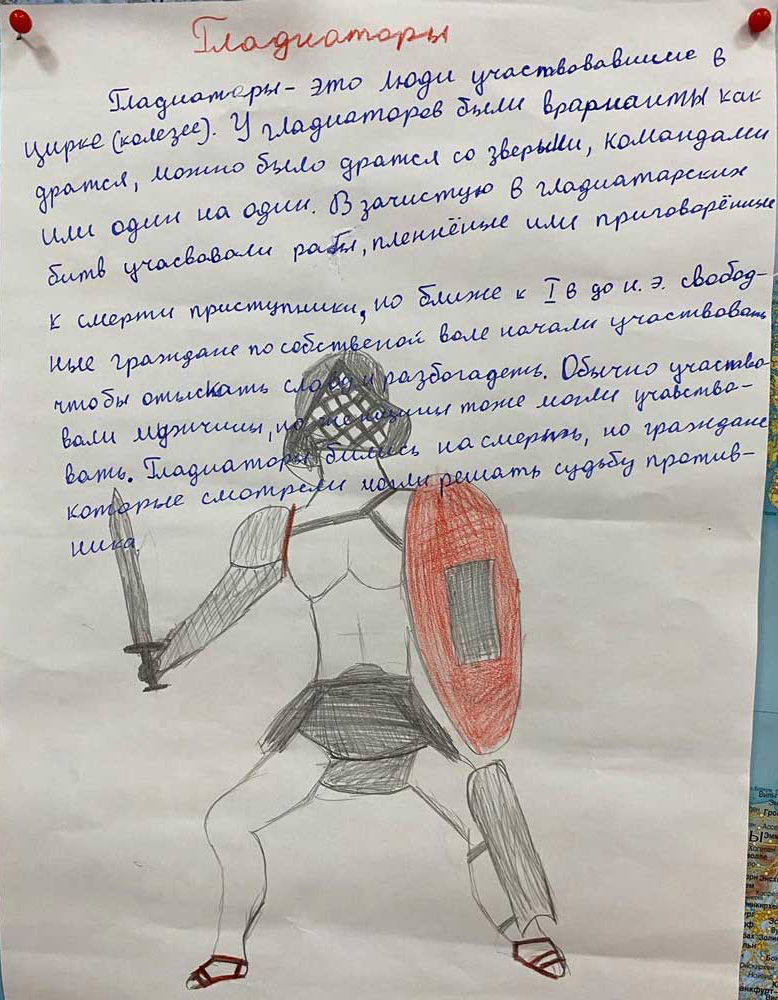 Гладиаторы
Гладиаторы - это люди участвовавшие в
цирке (колезее). У гладиаторов были врарианты как
дратся, можно было дратся со зверьми, командами
или один на один. В зачистую в гладиатарских
битв учасвовали рабы, пленнёные или приговорённые
к смерти приступники, но ближе к I в до н. э. свобод-
ные граждане по собственой воле начали участвовать
чтобы отыскать славу и разбогадеть. Обычно участво-
вали мужчины, но женщины тоже могли учавство-
вать. Гладиаторы бились на смерть, но граждане
которые смотрели могли решать судьбу против-
ника.